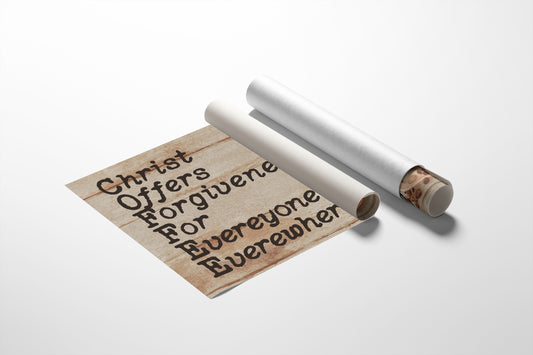 Christ
Offers
Forgivene
For
Evereyone
Everewher